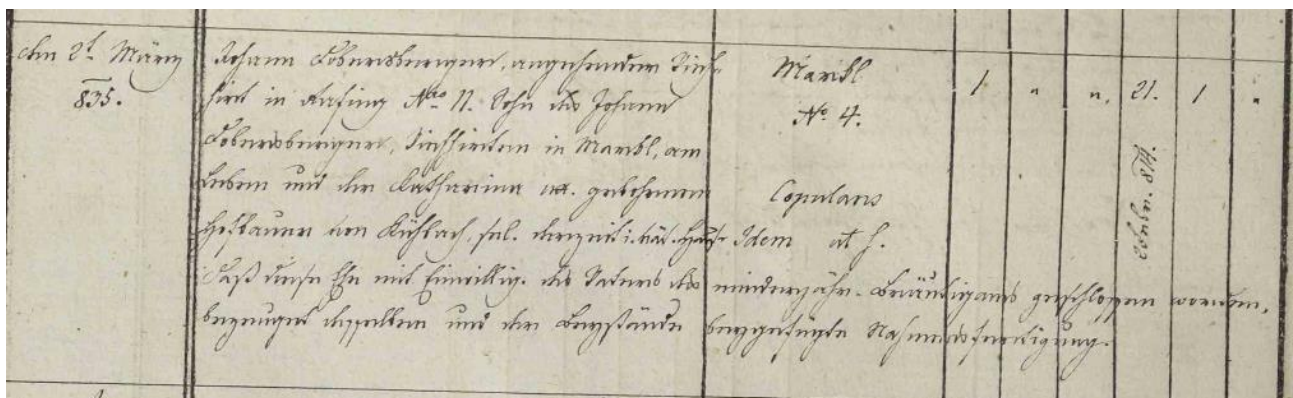 den 2t. März Johann Ebnersberger, angehender Vieh-
835. hirt in Aŋsing Nro 11. Sohn des Johann
Ebnersberger, Viehhirten in Maristl, am
Leben und der Katharina geborenen
Hofbauer von Kühbach, sel.
Daß diese Ehe mit Einwillig. des Vaters des minderjähr. Bräutigams geschlossen worden,
bezeuget desselben und der Beystände beygefügte Nahmensfertigung.
Maristl
No. 4.
Copulans
Idem ut s.
1 " " 21. 1 "
814.